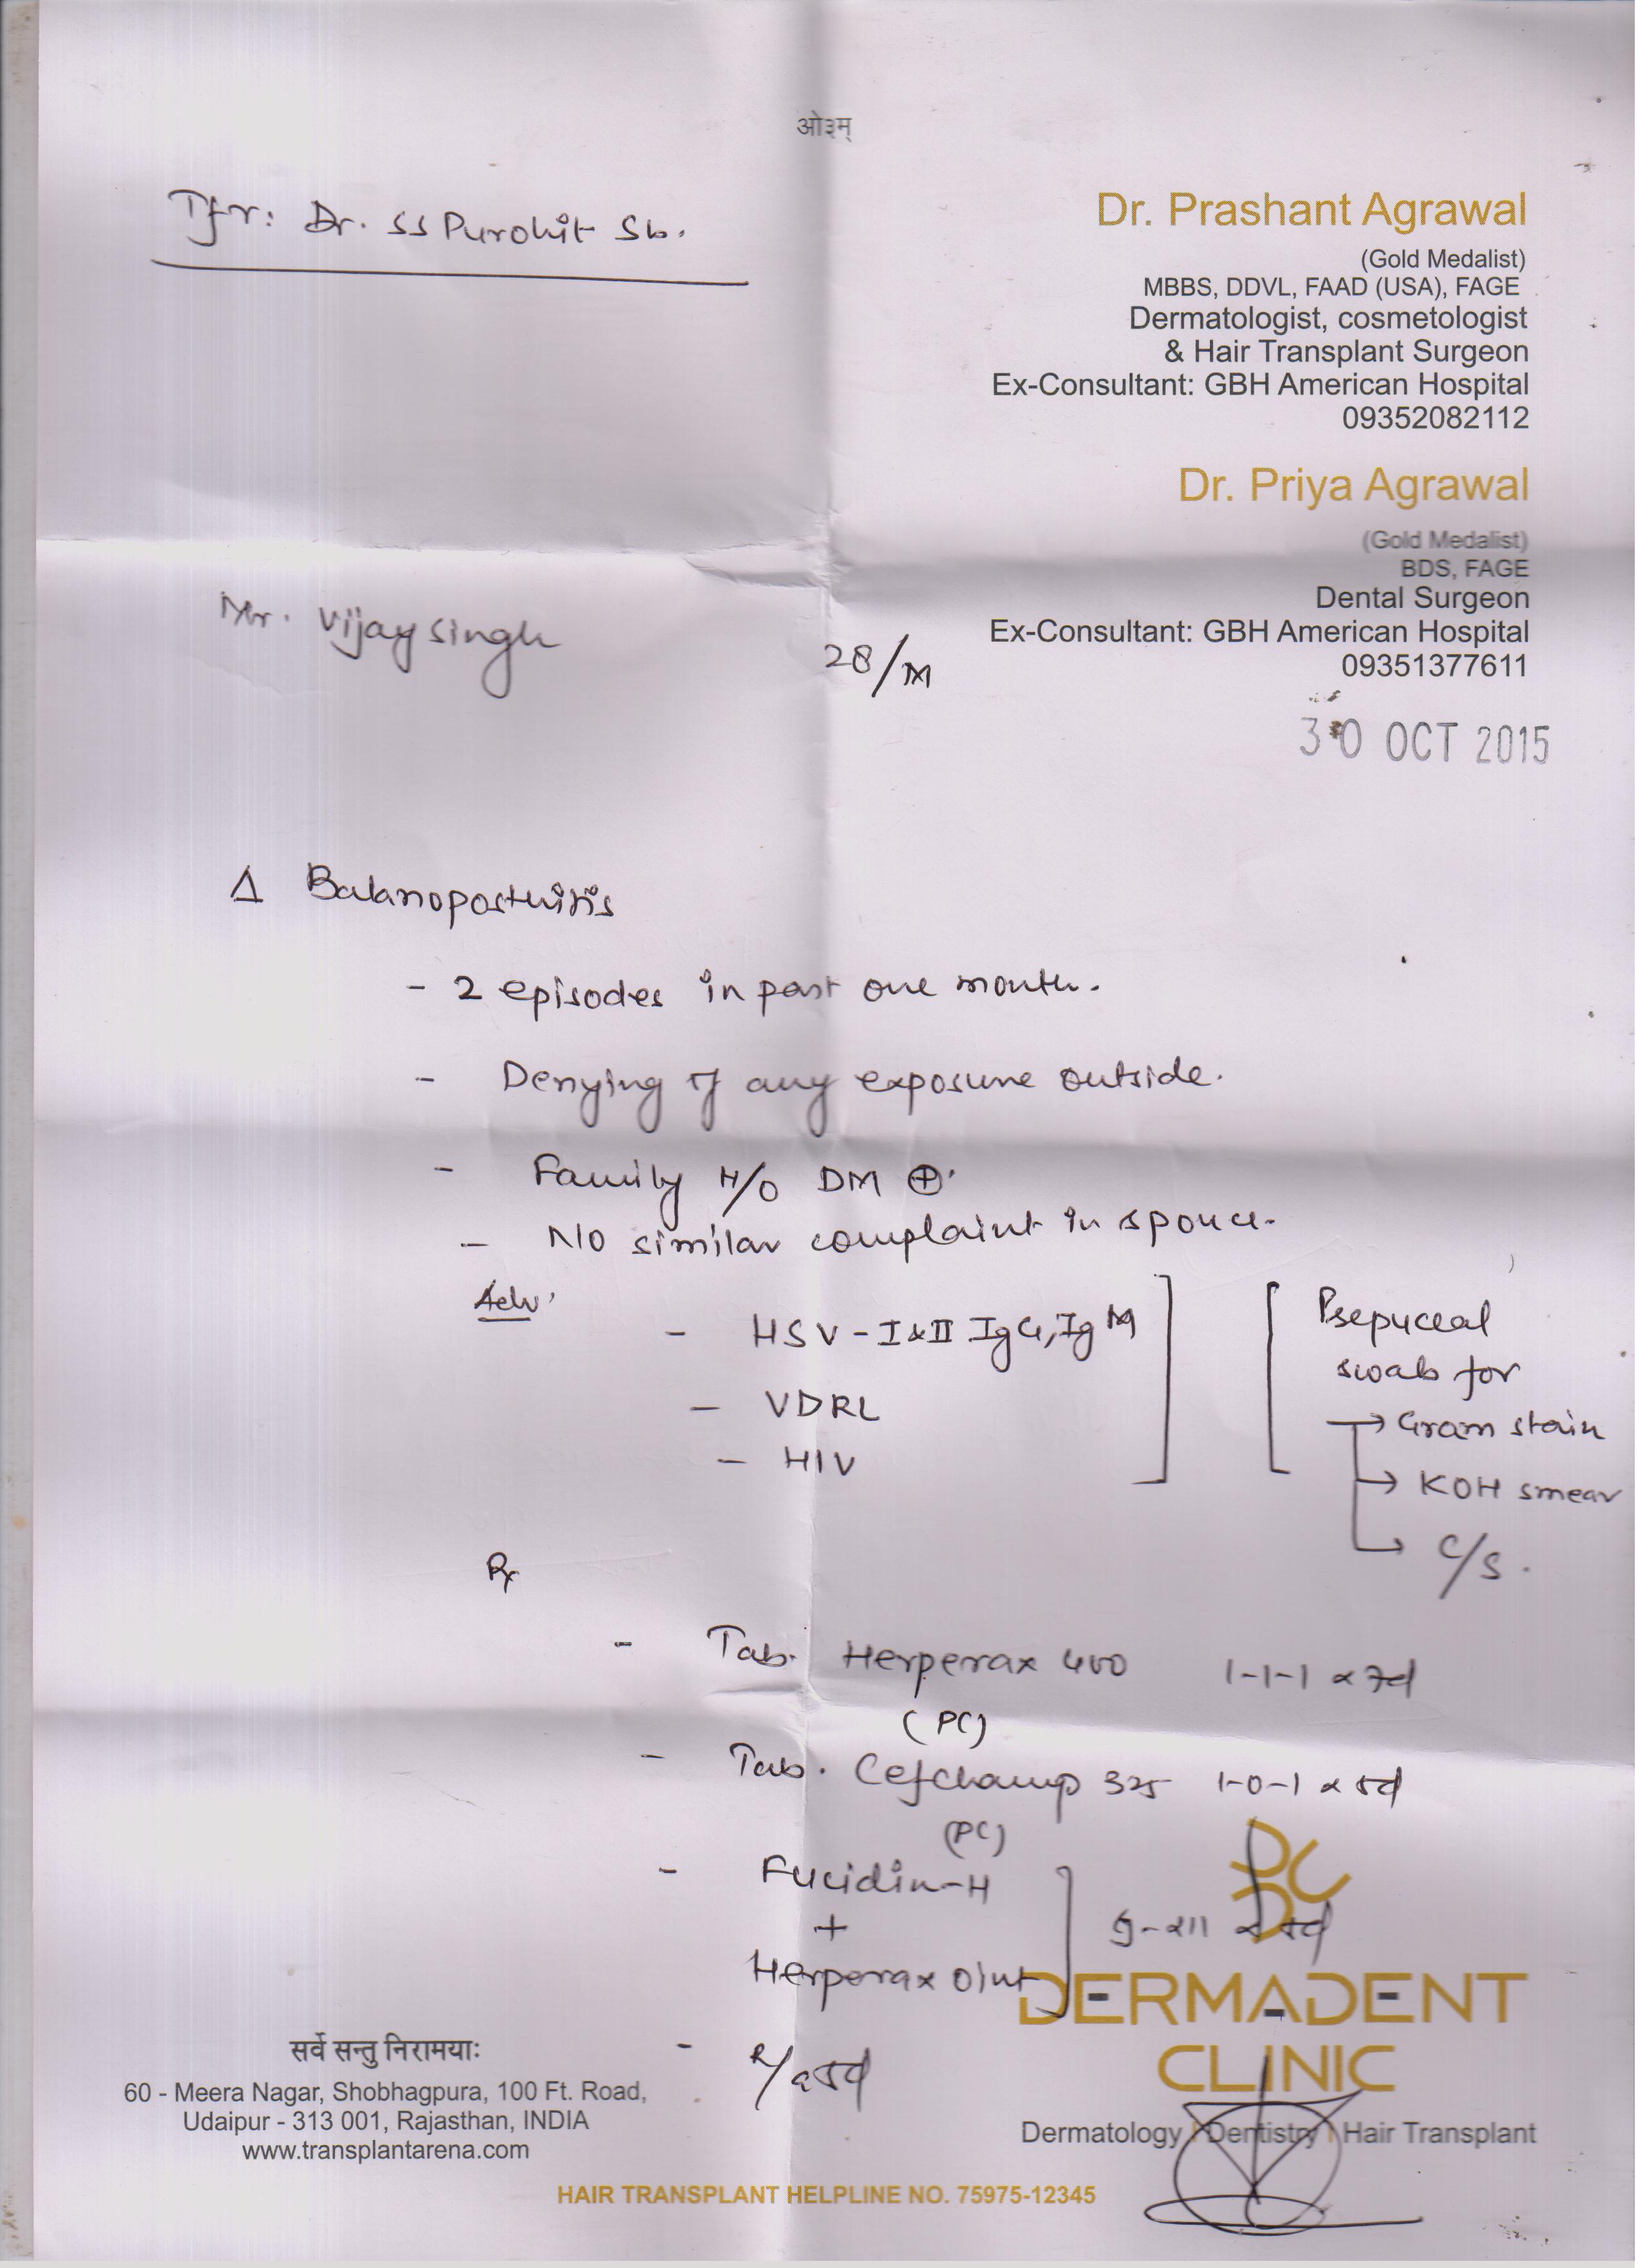 ओ३म्
Tfr: Dr. SS Purohit Sb.
Dr. Prashant Agrawal
(Gold Medalist)
MBBS, DDVL, FAAD (USA), FAGE
Dermatologist, cosmetologist
& Hair Transplant Surgeon
Ex-Consultant: GBH American Hospital
09352082112
Dr. Priya Agrawal
(Gold Medalist)
BDS, FAGE
Dental Surgeon
Ex-Consultant: GBH American Hospital
09351377611
Mr. Vijay Singh 28/M
30 OCT 2015
Δ Balanoposthitis
- 2 episodes in past one month.
- Denying of any exposure outside.
- Family H/O DM ⊕
- No similar complaint in spouce.
Adv'
- HSV-I&II IgG, IgM
- VDRL
- HIV
Prepuceal
swab for
→ Gram stain
→ KOH smear
→ C/S.
Rx
- Tab. Herperax 400 1-1-1 x 7d
(PC)
- Tab. Cefchamp 325 1-0-1 x 5d
(PC)
- Fucidin-H
+
Herperax Oint
x 5d
- R/a 5d
DERMADENT
CLINIC
Dermatology | Dentistry | Hair Transplant
सर्वे सन्तु निरामयाः
60 - Meera Nagar, Shobhagpura, 100 Ft. Road,
Udaipur - 313 001, Rajasthan, INDIA
www.transplantarena.com
HAIR TRANSPLANT HELPLINE NO. 75975-12345